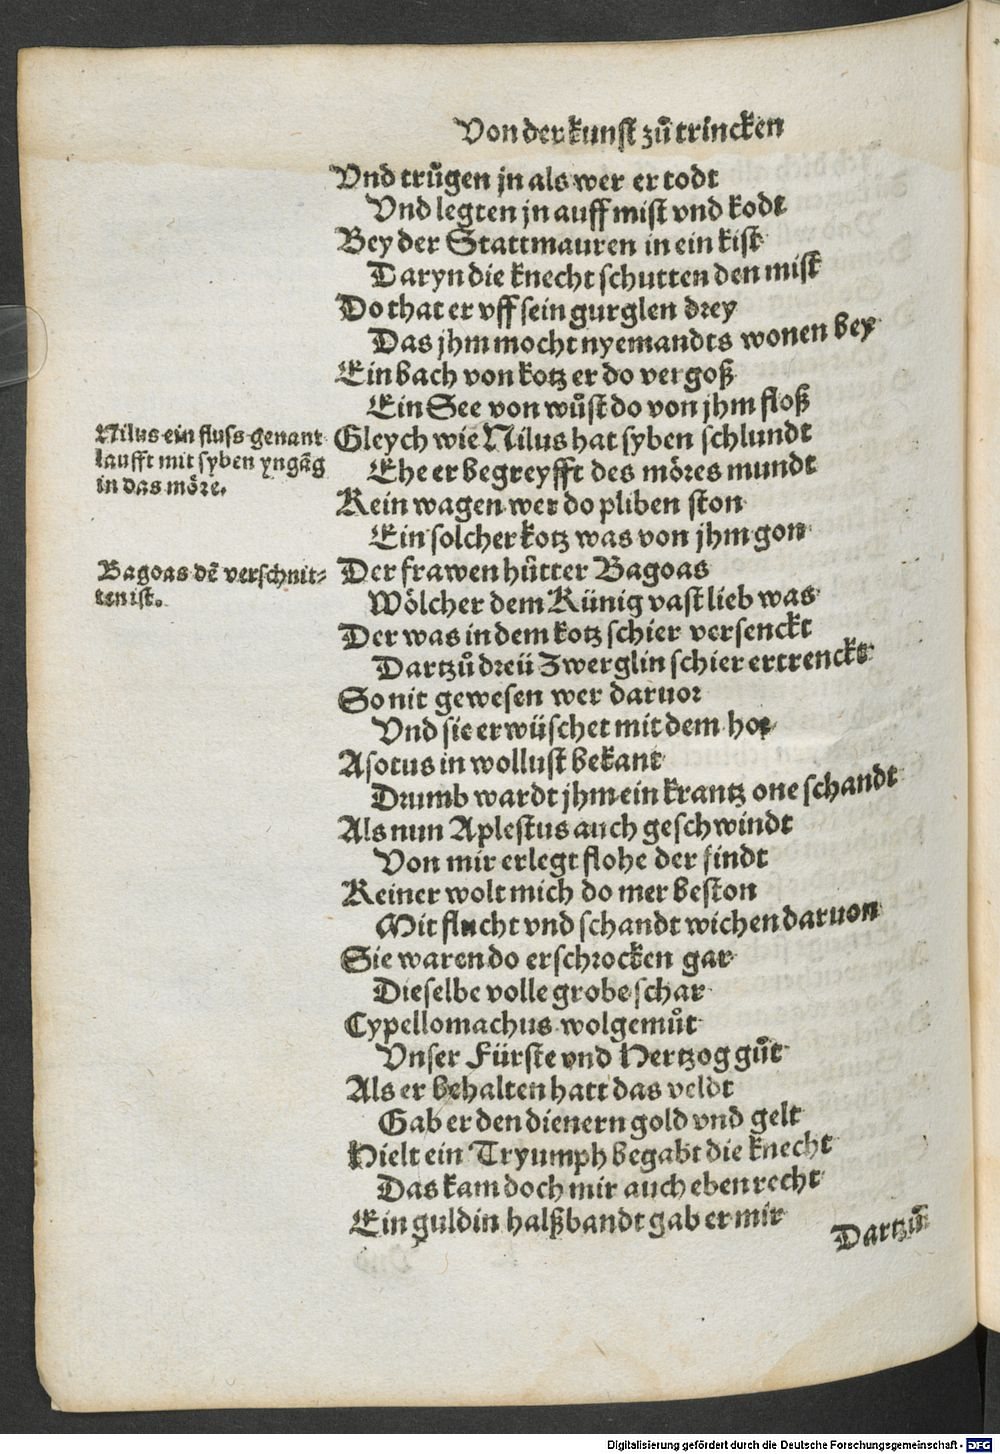 Von der kunst zů trincken
Vnd trůgen jn als wer er todt
Vnd legten jn auff mist vnd kodt
Bey der Stattmauren in ein kist
Daryn die knecht schutten den mist
Do that er vff sein gurglen drey
Das jhm mocht nyemandts wonen bey
Ein bach von kotz er do vergoß
Ein See von wůst do von jhm floß
Nilus ein fluss genant
laufft mit syben yngãg
in das möre.
Gleych wie Nilus hat syben schlundt
Ehe er begreyfft des möres mundt
Kein wagen wer do pliben ston
Ein solcher kotz was von jhm gon
Bagoas dẽ verschnit⸗
ten ist.
Der frawen hůtter Bagoas
Wölcher dem Künig vast lieb was
Der was in dem kotz schier versenckt
Dartzů dreü Zwerglin schier ertrenckt
So nit gewesen wer daruor
Vnd sie erwüschet mit dem hor
Asotus in wollust bekant
Drumb wardt jhm ein krantz one schandt
Als nun Aplestus auch geschwindt
Von mir erlegt flohe der findt
Keiner wolt mich do mer beston
Mit flucht vnd schandt wichen daruon
Sie waren do erschrocken gar
Dieselbe volle grobe schar
Cypellomachus wolgemůt
Vnser Fürste vnd Hertzog gůt
Als er behalten hatt das veldt
Gab er den dienern gold vnd gelt
Hielt ein Tryumph begabt die knecht
Das kam doch mir auch eben recht
Ein guldin halßbandt gab er mir
Dartzů
Digitalisierung gefördert durch die Deutsche Forschungsgemeinschaft - DFG